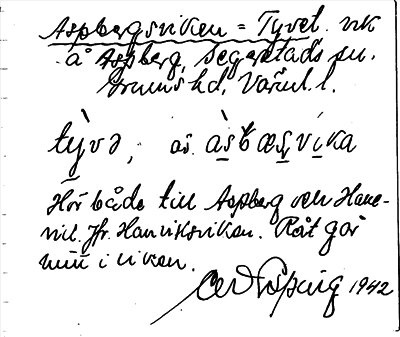 Aspbergsviken = Tyvet. vik
å Aspberg, Segerstads sn.
Grums hd, Värml. l.
tỳ̠və, av. às̠bæs̠v̠i̠ka
Hör både till Aspberg och Hane-
vik. Jfr. Hanviksviken. Råt går
in i viken.
1942